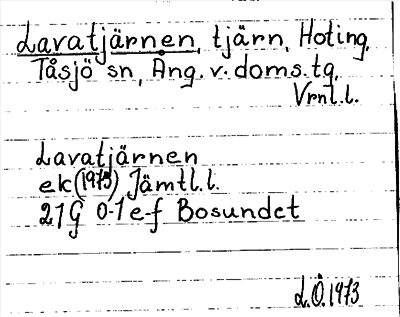 Lavatjärnen, tjärn, Hoting,
Tåsjö sn, Ång. v. doms.tg,
Vrnl.l.
Lavatjärnen
ek (1973) Jämtl.l.
21G 0-1 e-f Bosundet
L.Ö. 1973